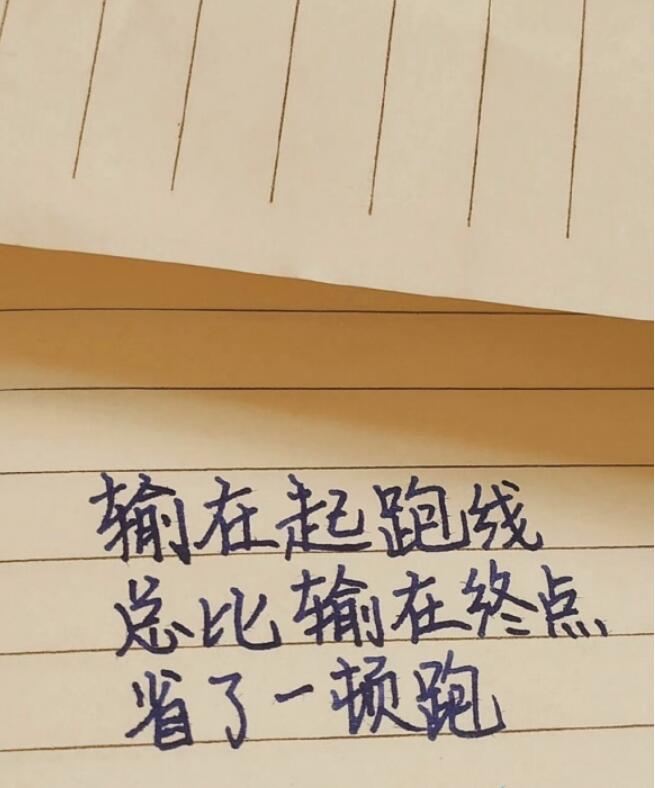 输在起跑线
总比输在终点
省了一顿跑